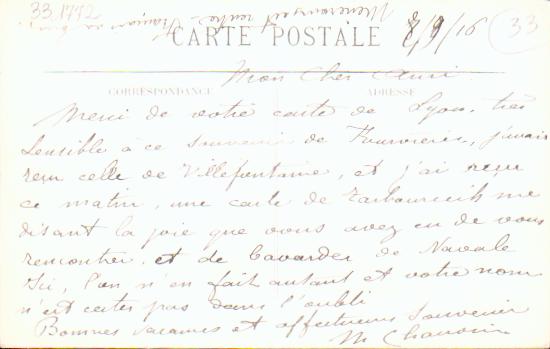 33.1772
33
8/9/16
CARTE POSTALE
CORRESPONDANCE
ADRESSE
Mon Cher Ami
Merci de votre carte de Lyon, très
sensible à ce souvenir de Fourvière, j'avais
reçu celle de Villefontaine, et j'ai reçu
ce matin, une carte de me
disant la joie que vous avez eu de vous
rencontrer et de bavarder de Navale
Ici, l'on n'en fait autant et votre nom
n'est certes pas dans l'oubli
Bonnes vacances et affectueux souvenir
M